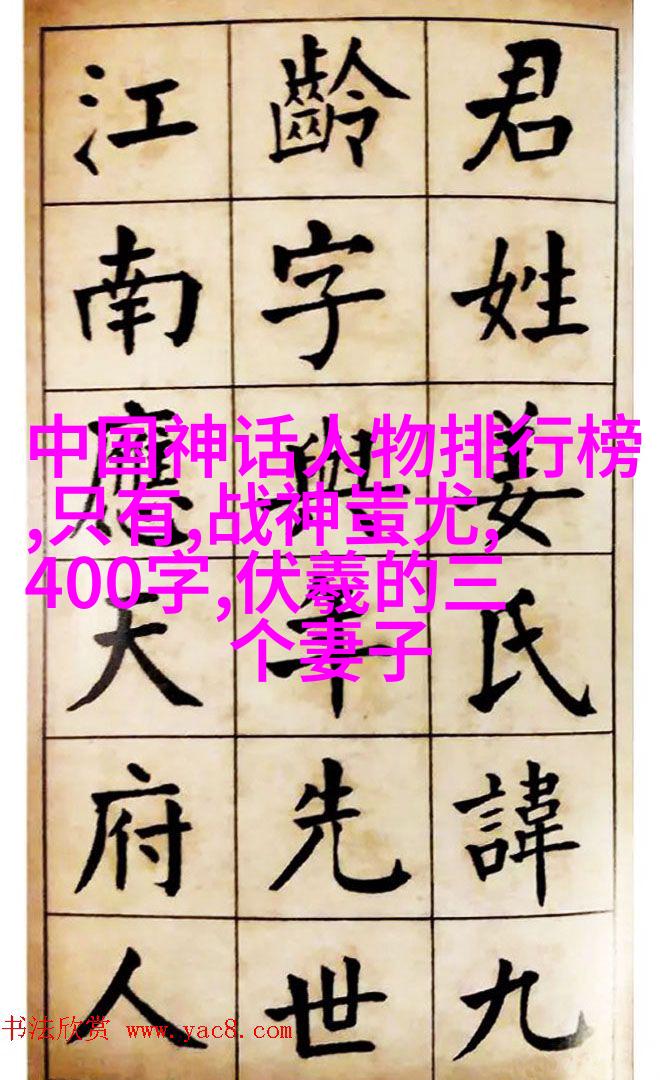 君姓姜氏諱九
齡字與年先世
江南應天府人
中国神话人物排行榜
,只有,战神蚩尤,
400字,伏羲的三
个妻子
书法欣赏 www.yac8.com